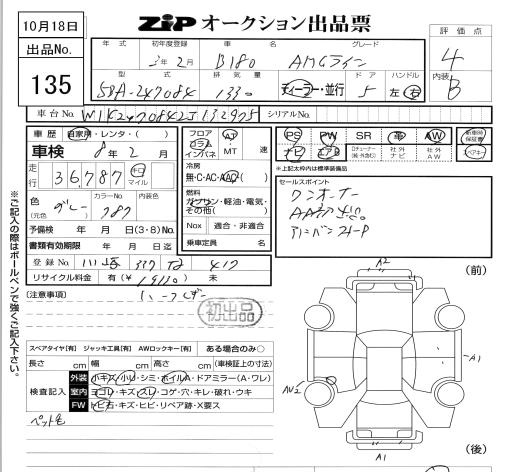 10月18日
ZiP オークション出品票
出品No.
135
評価点
4
内装
B
年式 初年度登録 車名 グレード
3年2月 B180 AMGライン
型式 排気量 ドア ハンドル
5BA-247084 1330 ディーラー・並行 5 左・右
車台No. W1K2470842J132975 シリアルNo.
車歴 自家用・レンタ・( )
車検 8年2月
走行 36,787 キロ マイル
色 (元色) グレー カラーNo. 787 内装色
予備検 年 月 日(3・8)No.
書類有効期限 年 月 日迄
登録No. 川崎 337 417
リサイクル料金 有(¥ ) 未
フロア コラム インパネ AT MT 速
冷房 無・C・AC・AAC
燃料 ガソリン・軽油・電気・その他( )
Nox 適合・非適合
乗車定員 名
PS PW SR 革 AW 新車時保証書
ナビ エアB ロチューナー(純・外含む) 社外ナビ 社外AW スペアキー
※上記太枠内は標準装備品
セールスポイント
ワンオーナー
(注意事項)
初出品
※ご記入の際はボールペンで強くご記入下さい。
スペアタイヤ[有] ジャッキ工具[有] AWロックキー[有] ある場合のみ○
長さ cm 幅 cm 高さ cm (車検証上の寸法)
検査記入
外装 小キズ・小凹・シミ・ホイルA・ドアミラー(A・ワレ)
室内 ヨゴレ・キズ・スレ・コゲ・穴・キレ・破れ・ウキ
FW トビ石・キズ・ヒビ・リペア跡・X要ス
ペット毛
(前)
A2
A1
AW2
A1
(後)